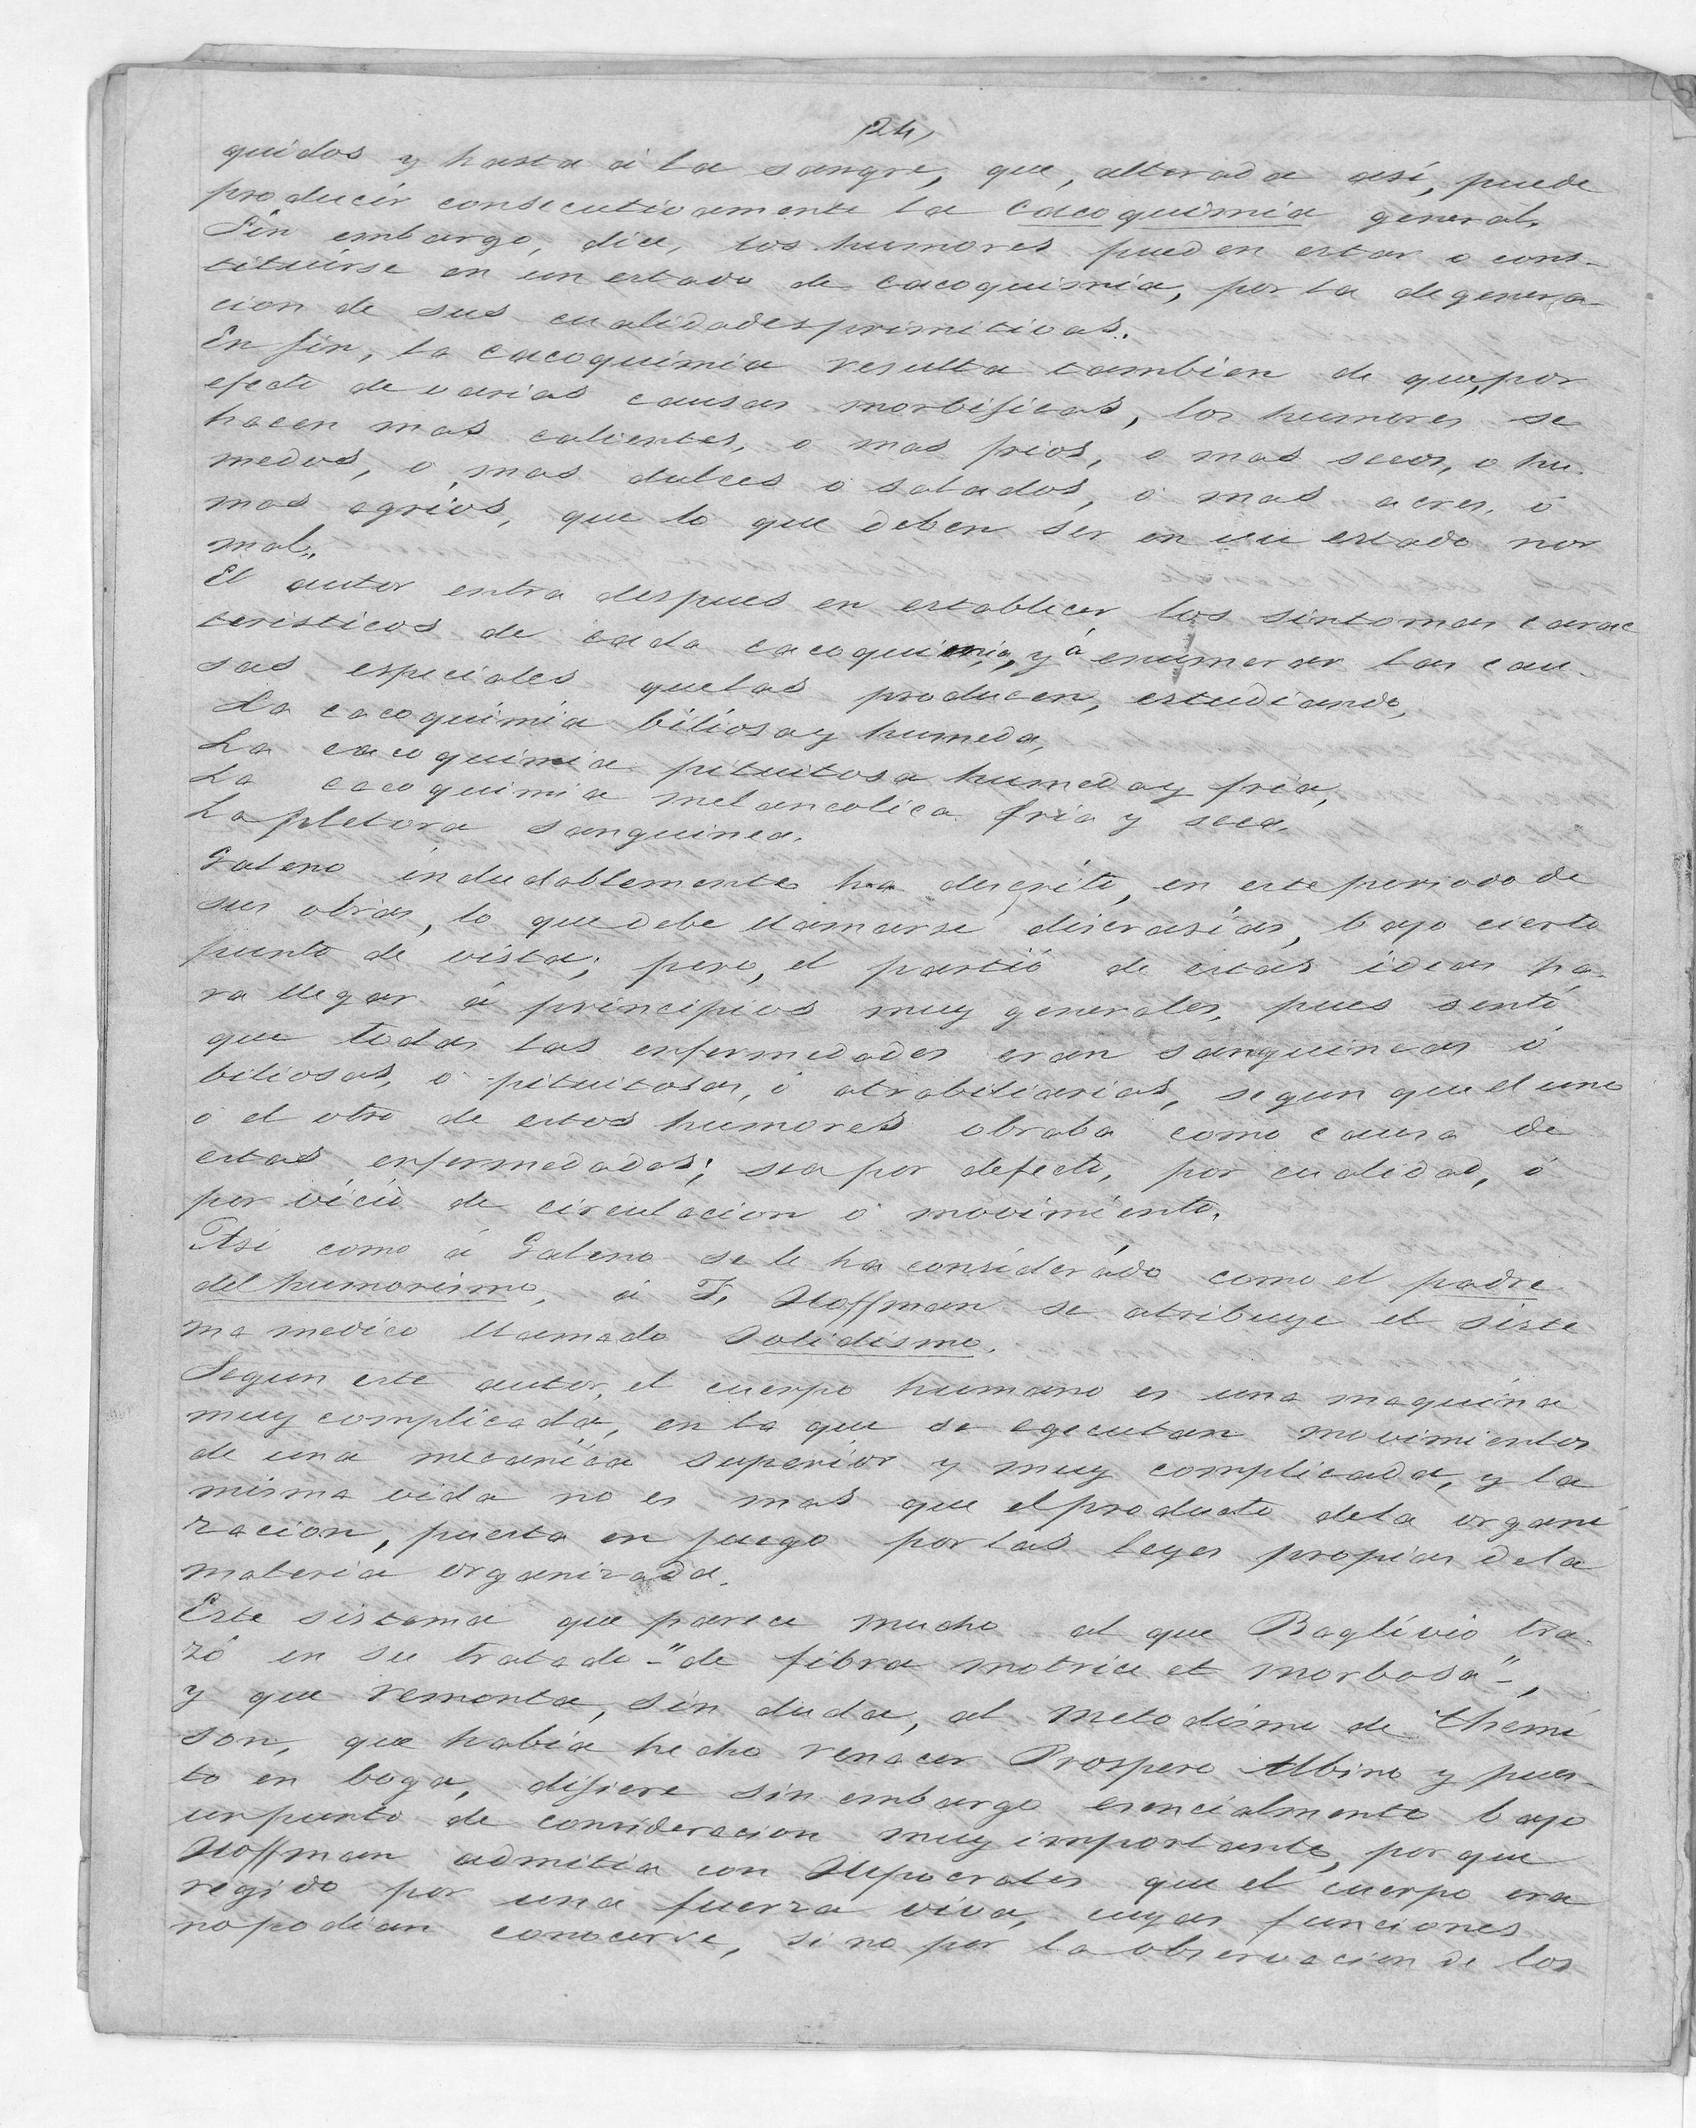 (24)
quidos y hasta á la sangre, que, alterada así, puede
producir consecutivamente la cacoquimia general.
Sin embargo, dice, los humores pueden estar o cons-
tituirse en un estado de cacoquimia, por la degenera-
cion de sus cualidades primitivas.
En fin, la cacoquimia resulta tambien de que, por
efecto de varias causas morbificas, los humores se
hacen mas calientes, o mas frios, o mas secos, o hu-
medos, o mas dulces o salados, o mas acres, o
mas agrios, que lo que deben ser en su estado nor
mal.
El autor entra despues en establecer los sintomas carac
teristicos de cada cacoquimia, y á enumerar las cau-
sas especiales que las producen, estudiando,
La cacoquimia biliosa y humeda,
La cacoquimia pituitosa humeda y fria,
La cacoquimia melancolica fria y seca.
La pletora sanguinea.
Galeno indudablemente ha descrito, en este periodo de
sus obras, lo que debe llamarse discrasias, bajo cierto
punto de vista; pero, el partió de estas ideas pa-
ra llegar á principios muy generales, pues sentó
que todas las enfermedades eran sanguineas ó
biliosas, o pituitosas, ó atrabiliarias, segun que el uno
o el otro de estos humores obraba como causa de
estas enfermedades; sea por defecto, por cualidad, ó
por vicio de circulacion o movimiento.
Asi como á Galeno se le ha considerádo como el padre
del humorismo, á F. Hoffman se atribuye el siste
ma medico llamado Solidismo.
Segun este autor, el cuerpo humano es una maquina
muy complicada, en la que se egecutan movimientos
de una mecanica superior y muy complicada, y la
misma vida no es mas que el producto de la organi
zacion, puesta en juego por las leyes propias de la
materia organizada.
Este sistema que parece mucho al que Baglivio tra-
zó en su tratado -"de fibra motrice et morbosa"-,
y que remonta, sin duda, al metodismo de Themi
son, que habia hecho renacer Prospero Albino y pues-
to en boga, difiere sin embargo esencialmente bajo
un punto de consideracion muy importante, porque
Hoffman admitia con Hipocrates que el cuerpo era
regido por una fuerza viva, cuyas funciones
no podian conocerse, si no por la observacion de los